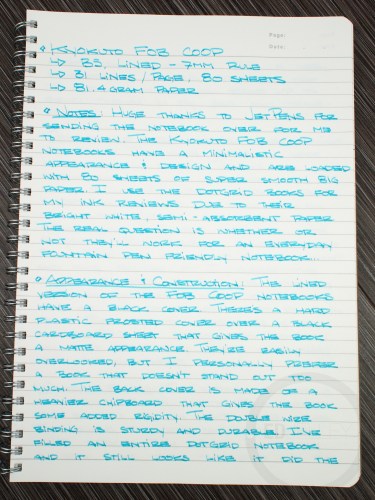 Page:
Date:
◊ Kyokuto Fob Coop
↳ B5, Lined - 7mm Rule
↳ 31 Lines/Page, 80 Sheets
↳ 81.4 gram paper
◊ Notes: Huge thanks to JetPens for
sending the notebook over for me
to review. The Kyokuto Fob Coop
notebooks have a minimalistic
appearance & design and are loaded
with 80 sheets of super smooth 81g
paper. I use the dotgrid books for
my ink reviews due to their
bright white, semi-absorbent paper
The real question is whether or
not they'll work for an everyday
fountain pen friendly notebook...
◊ Appearance & Construction: The lined
version of the Fob Coop notebooks
have a black cover. There's a hard
plastic frosted cover over a black
cardboard sheet that gives the book
a matte appearance. They're easily
overlooked, but I personally prefer
a book that doesn't stand out too
much. The back cover is made of a
heavier chipboard that gives the book
some added rigidity. The double wire
binding is sturdy and durable. I've
filled an entire dotgrid notebook
and it still looks like it did the